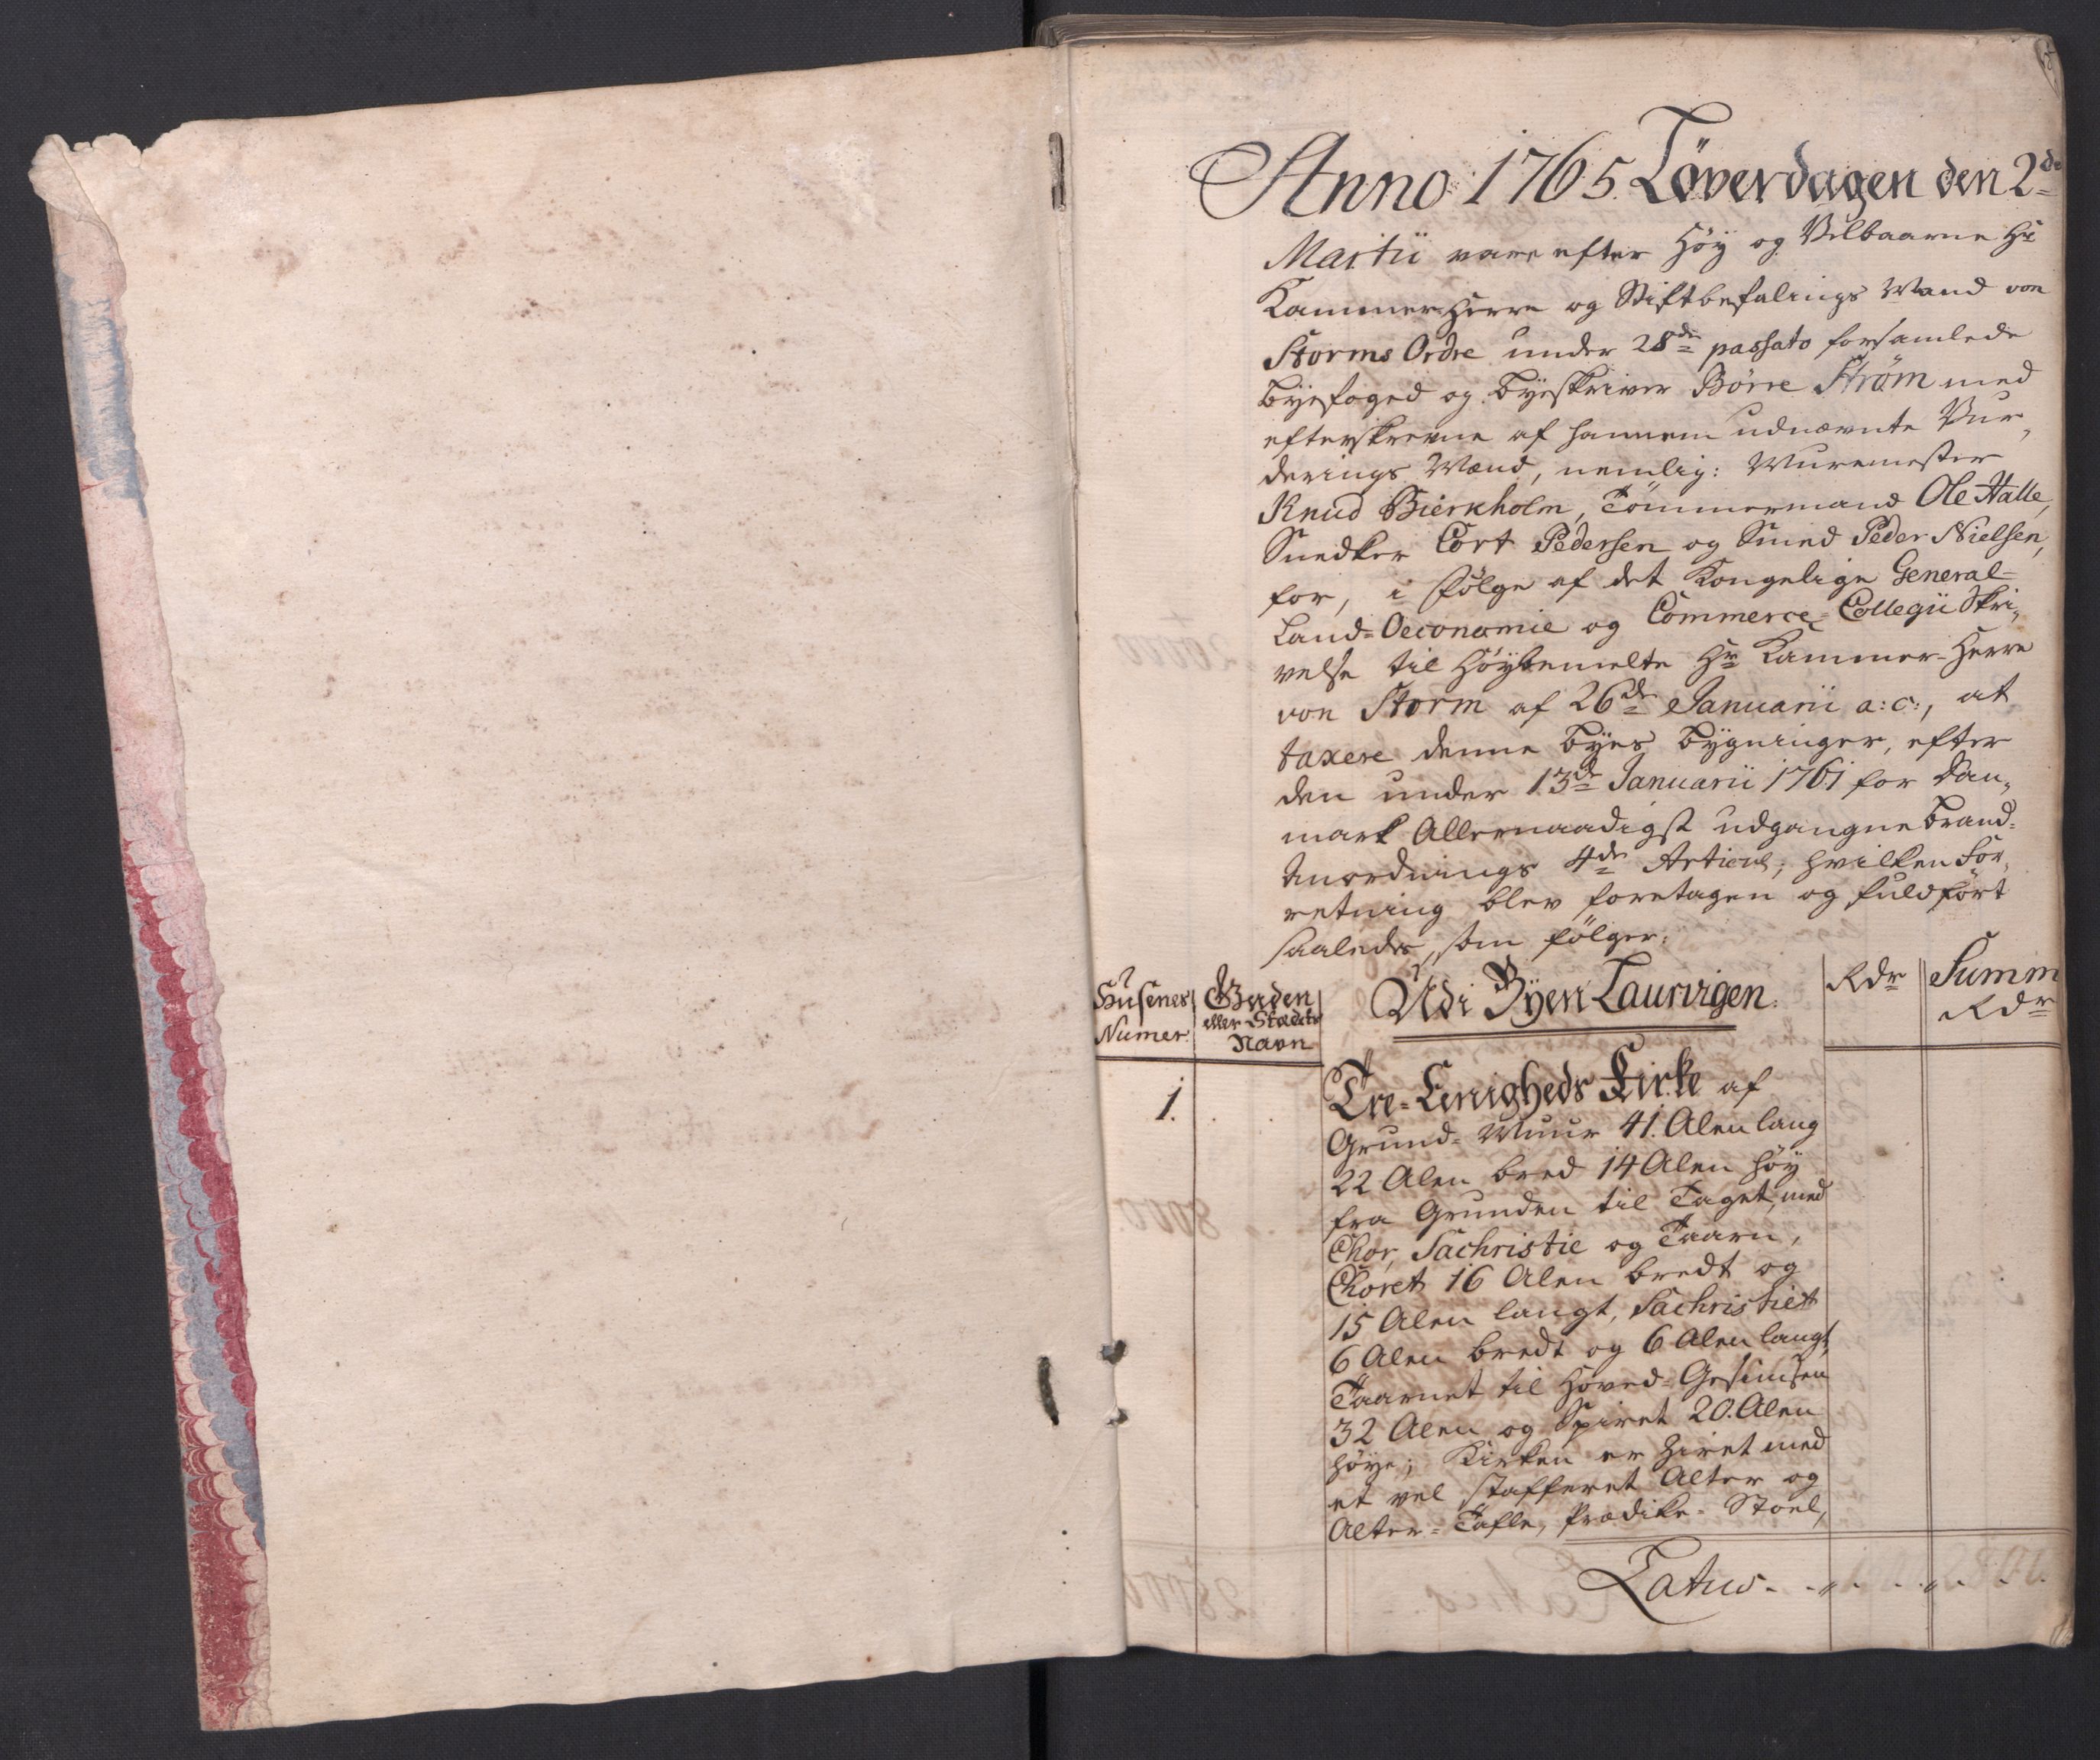 Anno 1765. Løverdagen den 2de
Martii vare efter Høy og Velbaarne Hr
Kammer-Herre og Stiftbefalings Mand von
Storms Ordre under 28de passato forsamlede
Byefoged og Byeskriver Börre Ström med
efterskrevne af hannem udnævnte Vur,,
derings Mænd, nemlig: Muremester
Knud Bierkholm, Tömmermand Ole Halle,
Snedker Cort Pedersen og Smed Peder Nielsen,
for, i Følge af det Kongelige General-
Land-Oeconomie og Commerce-Collegii Skri,,
velse til Høybemelte Hr Kammer-Herre
von Storm af 26de Januarii a:c:, at
taxere denne Byes Bygninger, efter
den under 13de Januarii 1761 for Dan,,
mark Allernaadigst udgangne Brand-
Anordnings 4de Articul; hvilken For,,
retning blev foretagen og fuldført
saaledes, som følger:
Husenes Numer.
Gaden eller Stædets Navn
Udi Byen Laurvigen.
Rdr
Summ
Rdr
1.
Tre-Eenigheds Kirke af
Grund-Muur 41. Alen lang
22 Alen bred 14 Alen høy
fra Grunden til Taget, med
Chor, Sachristie og Taarn,
Choret 16 Alen bredt og
15 Alen langt, Sachristiet
6 Alen bredt og 6 Alen langt,
Taarnet til Hoved-Gesimsen
32 Alen og Spiret 20. Alen
høye; Kirken er ziret med
et vel stafferet Alter og
Alter-Tafle, Prædike-Stoel,
Latus - - „ - - - „ - - -